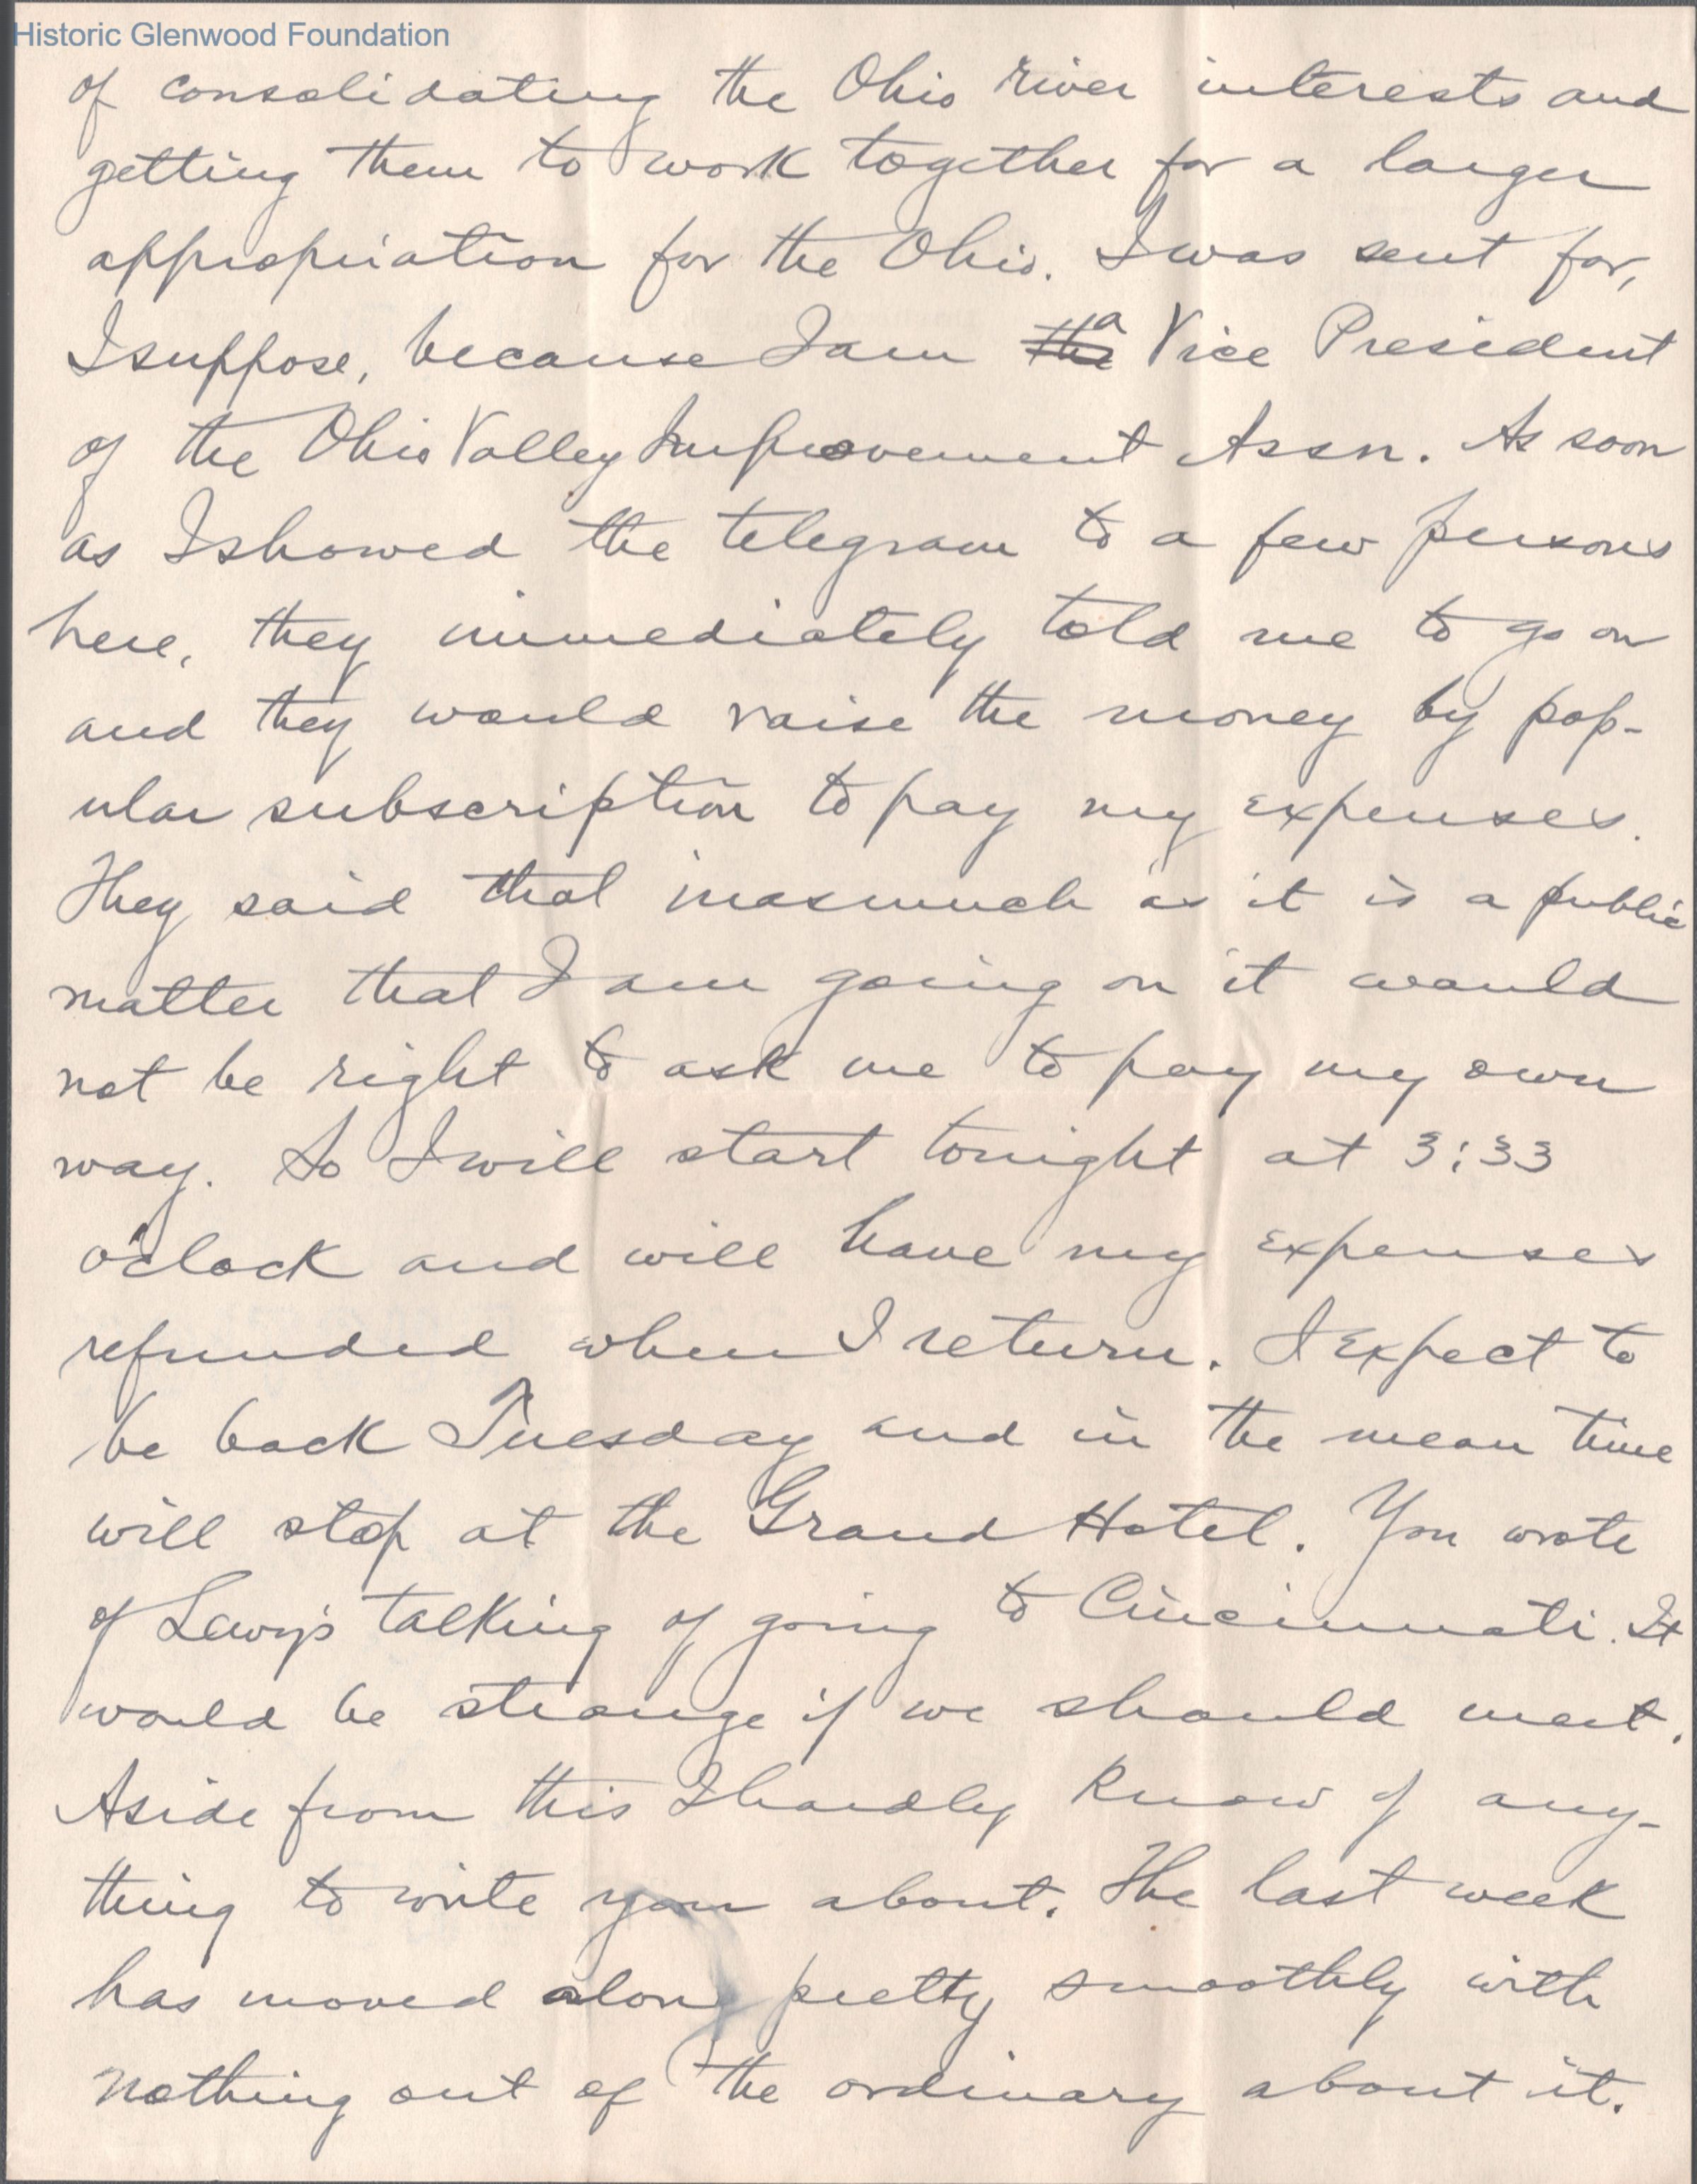 Historic Glenwood Foundation
of consolidating the Ohio river interests and
getting them to work together for a larger
appropriation for the Ohio. I was sent for,
I suppose, because I am the a Vice President
of the Ohio Valley Improvement Assn. As soon
as I showed the telegram to a few persons
here, they immediately told me to go on
and they would raise the money by pop-
ular subscription to pay my expenses.
They said that inasmuch as it is a public
matter that I am going on it would
not be right to ask me to pay my own
way. So I will start tonight at 3:33
o'clock and will have my expenses
refunded when I return. I expect to
be back Tuesday and in the mean time
will stop at the Grand Hotel. You wrote
of talking of going to Cincinnati. It
would be strange if we should meet.
Aside from this I hardly know of any-
thing to write you about. The last week
has moved along pretty smoothly with
nothing out of the ordinary about it.